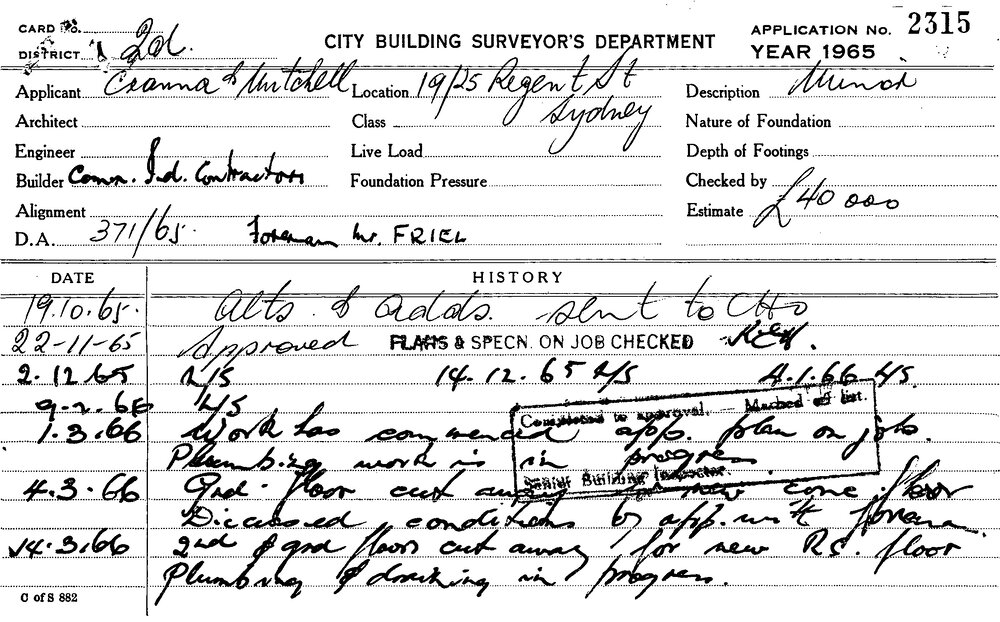 CARD No.
APPLICATION No. 2315
DISTRICT 2d.
CITY BUILDING SURVEYOR'S DEPARTMENT
YEAR 1965
Applicant Cranna & Mitchell Location 19/25 Regent St Sydney Description Minor
Architect Class Nature of Foundation
Engineer Live Load Depth of Footings
Builder Comm. Ind. Contractors Foundation Pressure Checked by
Alignment Estimate £40 000
D.A. 371/65. Foreman Mr. FRIEL
DATE HISTORY
19.10.65. Alts. & adds. sent to CHO
22-11-65 Approved PLANS & SPECN. ON JOB CHECKED
2.12.65 N/S 14.12.65 N/S 4.1.66 N/S.
9.2.66 N/S
Completed to approval. Marked off list.
1.3.66 Work has commenced app. plan on job.
Plumbing work is in progress
Senior Building Inspector.
4.3.66 Grd. floor cut away for new conc. floor
Discussed conditions of app. with foreman.
14.3.66 2nd & grd floors cut away for new R.C. floor
Plumbing & draining in progress.
C of S 882